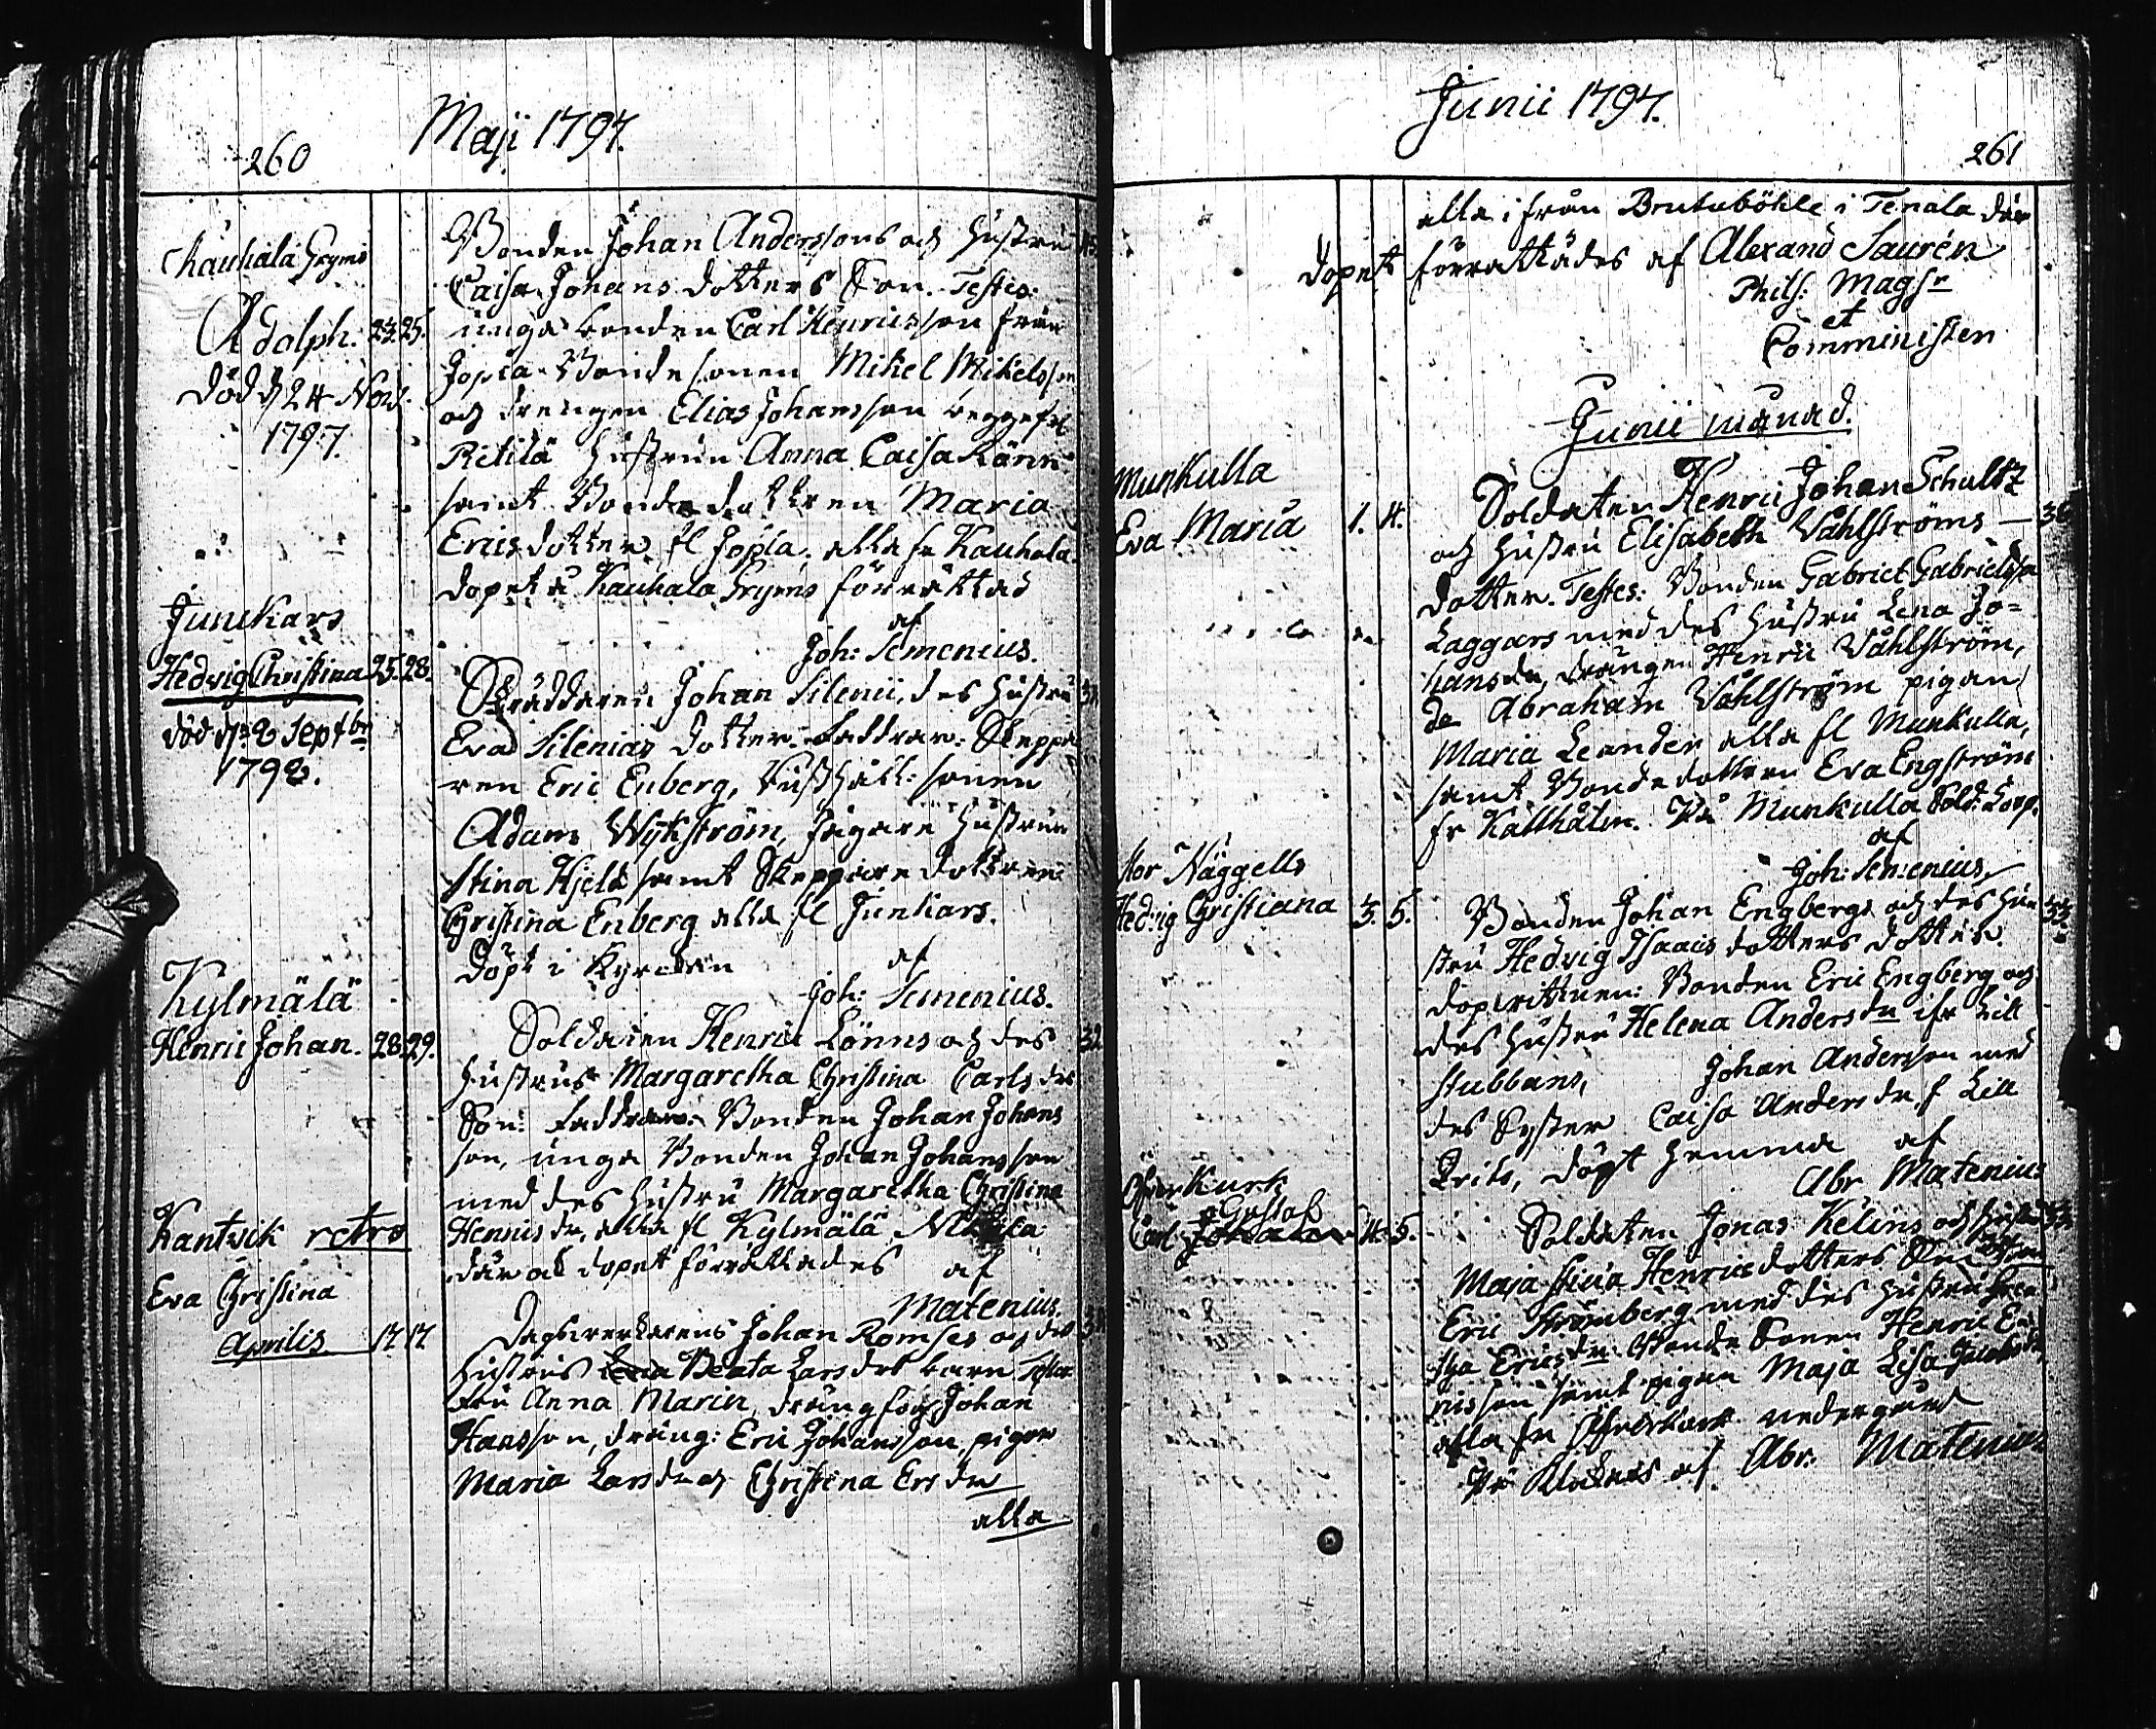 260
Maji 1797.
Kauhala Gryms
Adolph. 23. 25.
död d 24 Nov.
1797.
Bonden Johan Anderssons och Hustru
Caisa Johans dotters Son. Testes:
unga bonden Carl Henricsson från
Jopla. Bondesonen Mikel Mikelsson
och drengen Elias Johansson begge fr
Ritilä Hustrun Anna Caisa
samt Bondedottren Maria
Ericsdotter fl Jopla. alla fr Kauhala.
dopet å Kauhala Gryms förrättad
af
Joh: Semenius.
Junkars
Hedvig Christina 25. 28.
död d. 2 Septbr
1798.
Skräddaren Johan Silenii, des Hustru
Eva Silenias dotter. Faddrar: Skeppa
ren Eric Enberg, sonen
Adam Wykström, Jägare Hustrun
Stina Hjelt samt Skeppare dottren
Christina Enberg alla fl Junkars.
Döpt i Kyrckan af
Joh: Semenius.
Kylmälä
Henric Johan. 28. 29.
Soldaten Henric Lönns och des
Hustrus Margaretha Christina Carls dr
Son: Faddrar: Bonden Johan Johans
son, unga Bonden Johan Johansson
med des Hustru Margaretha Christina
Henricsdr, alla fl Kylmälä
därad dopet förrättades af
Matenius.
Kantvik retro
Eva Christina
Aprilis 17. 17.
Johan Romses och des
Hustrus Lena Beata Larsdrs barn Testes
Anna Maria, Johan
Hansson, dräng: Eric Johansson, pigor
Maria Larsdr och Christina Ersdr
alla
Junii 1797.
261
alla ifrån Brutuböhle i Tenala där
dopet förrättades af Alexand Saurén
Phils: Magsr
et
Comministen
Junii månad.
Munkulla
Eva Maria 1. 4.
Soldaten Henric Johan Schultz
och Hustru Elisabeth Wåhlströms
dotter. Testes: Bonden Gabriel Gabrielsson
Laggars med des Hustru Lena Jo=
hansdr, drängen Henric Wåhlström,
do Abraham Wåhlström pigan
Maria Leander alla fl Munkulla,
samt Bondedottren Eva Engström
fr Källhålen. På Munkulla Sold: Torp.
af
Joh: Semenius
Stor Näggells
Hedvig Christiana 3. 5.
Bonden Johan Engbergs och des Hu
stru Hedvig Isaacs dotters dotter
dopvittnen: Bonden Eric Engberg och
des Hustru Helena Andersdr ifr Lill
stubbans, Johan Andersson med
des Syster Caisa Andersdr, f Lill
döpt hemma af
Abr Matenius
Öfverkurk
Carl Gustaf 4. 5.
Soldaten Jonas Kelins och Hustru
Maja Stina Henricsdotters Son
Eric Strömberg med des Hustru
Ericsdr. Bonde Sonen Henric
samt pigan Maja Lisa Jacobsdr
alla fr Öfverkurk
af Abr. Matenius